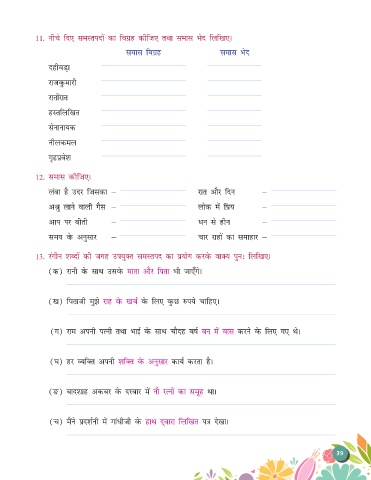 11. नीचे दिए समस्तपदों का विग्रह कीजिए तथा समास भेद लिखिए।
समास विग्रह समास भेद
दहीबड़ा
राजकुमारी
रातोंरात
हस्तलिखित
सेनानायक
नीलकमल
गृहप्रवेश
12. समास कीजिए।
लंबा है उदर जिसका – रात और दिन –
अश्रु लाने वाली गैस – लोक में प्रिय –
आप पर बीती – धन से हीन –
समय के अनुसार – चार राहों का समाहार –
13. रंगीन शब्दों की जगह उपयुक्त समस्तपद का प्रयोग करके वाक्य पुनः लिखिए।
(क) रानी के साथ उसके माता और पिता भी जाएँगे।
(ख) पिताजी मुझे राह के खर्च के लिए कुछ रुपये चाहिए।
(ग) राम अपनी पत्नी तथा भाई के साथ चौदह वर्ष वन में वास करने के लिए गए थे।
(घ) हर व्यक्ति अपनी शक्ति के अनुसार कार्य करता है।
(ङ) बादशाह अकबर के दरबार में नौ रत्नों का समूह था।
(च) मैंने प्रदर्शनी में गांधीजी के हाथ द्वारा लिखित पत्र देखा।
39